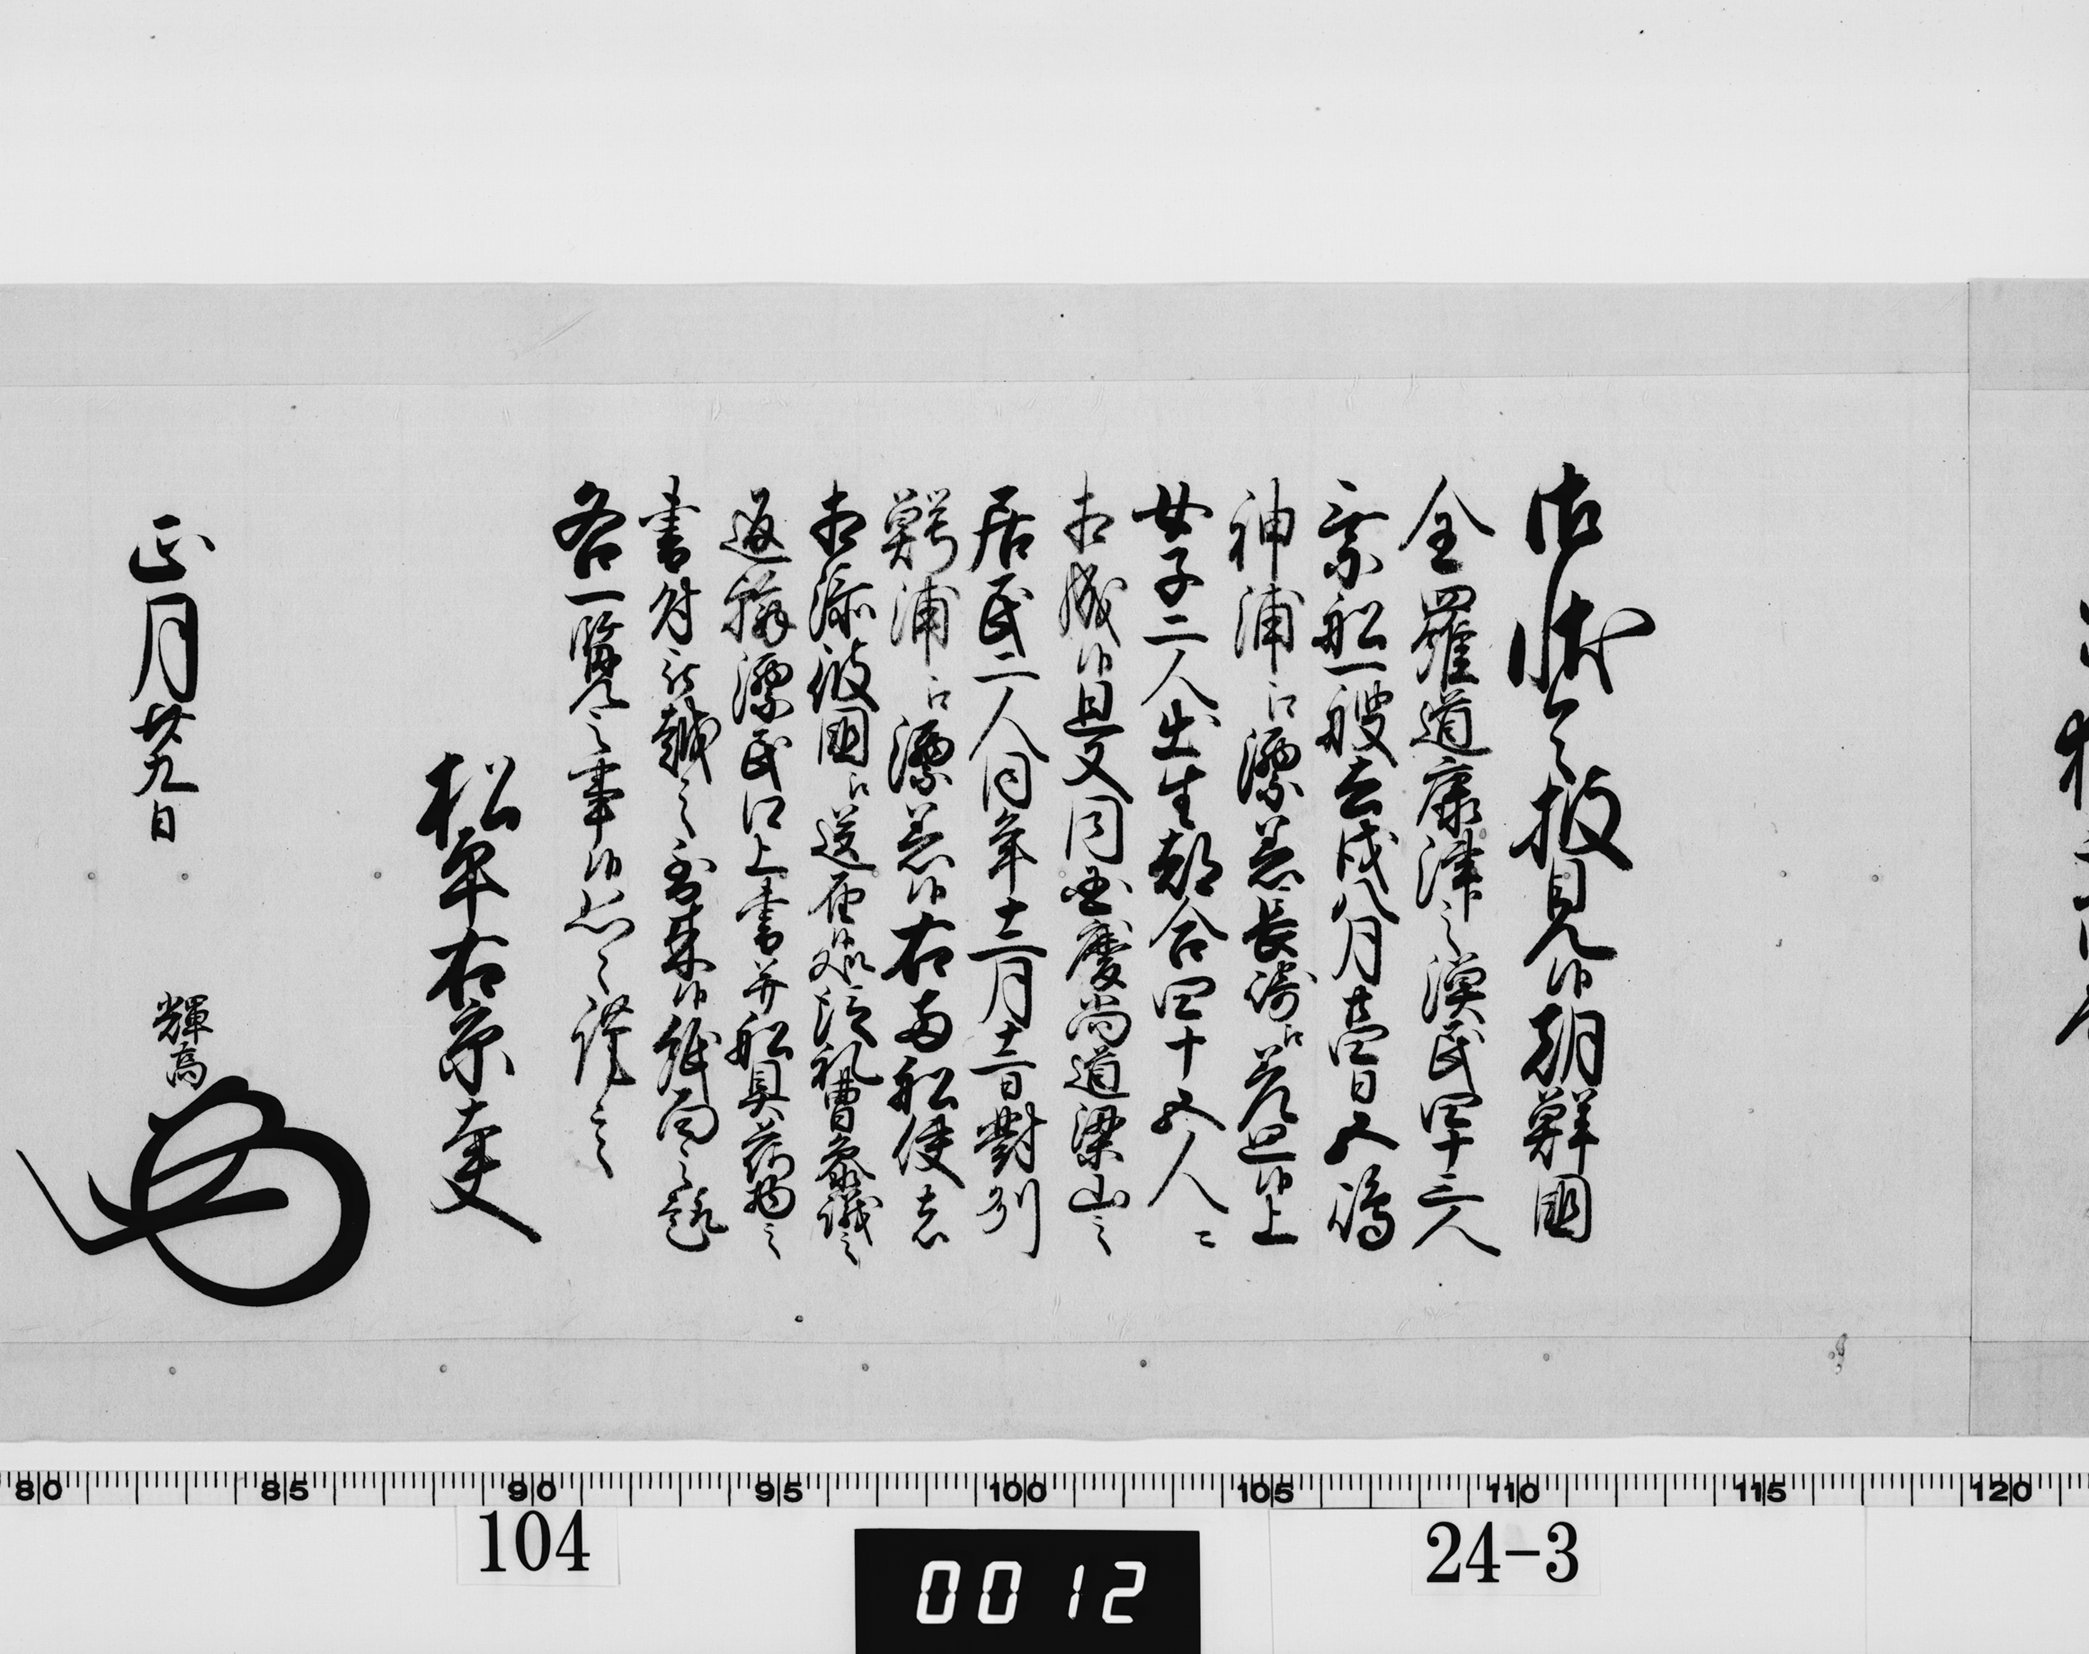 御状令披見候朝鮮国
全羅道康津之漁民四十三人
乗船一艘去戌八月十四日五嶋
神浦江漂着長崎江差廻候上
女子二人出生都合四十五人ニ
相成候且又同国慶尚道梁山之
居民二人同年十二月十二日對州
鰐浦江漂着候右両船使者
相添彼国江送届候処従礼曹参議之
返翰漂民口上書并船具荷物之
書付被献之到来候紙面之趣
各一覧之事候恐々謹言
松平右京大夫
正月廿九日 輝高
80 85 90 95 100 105 110 115 120
104 0012 24-3